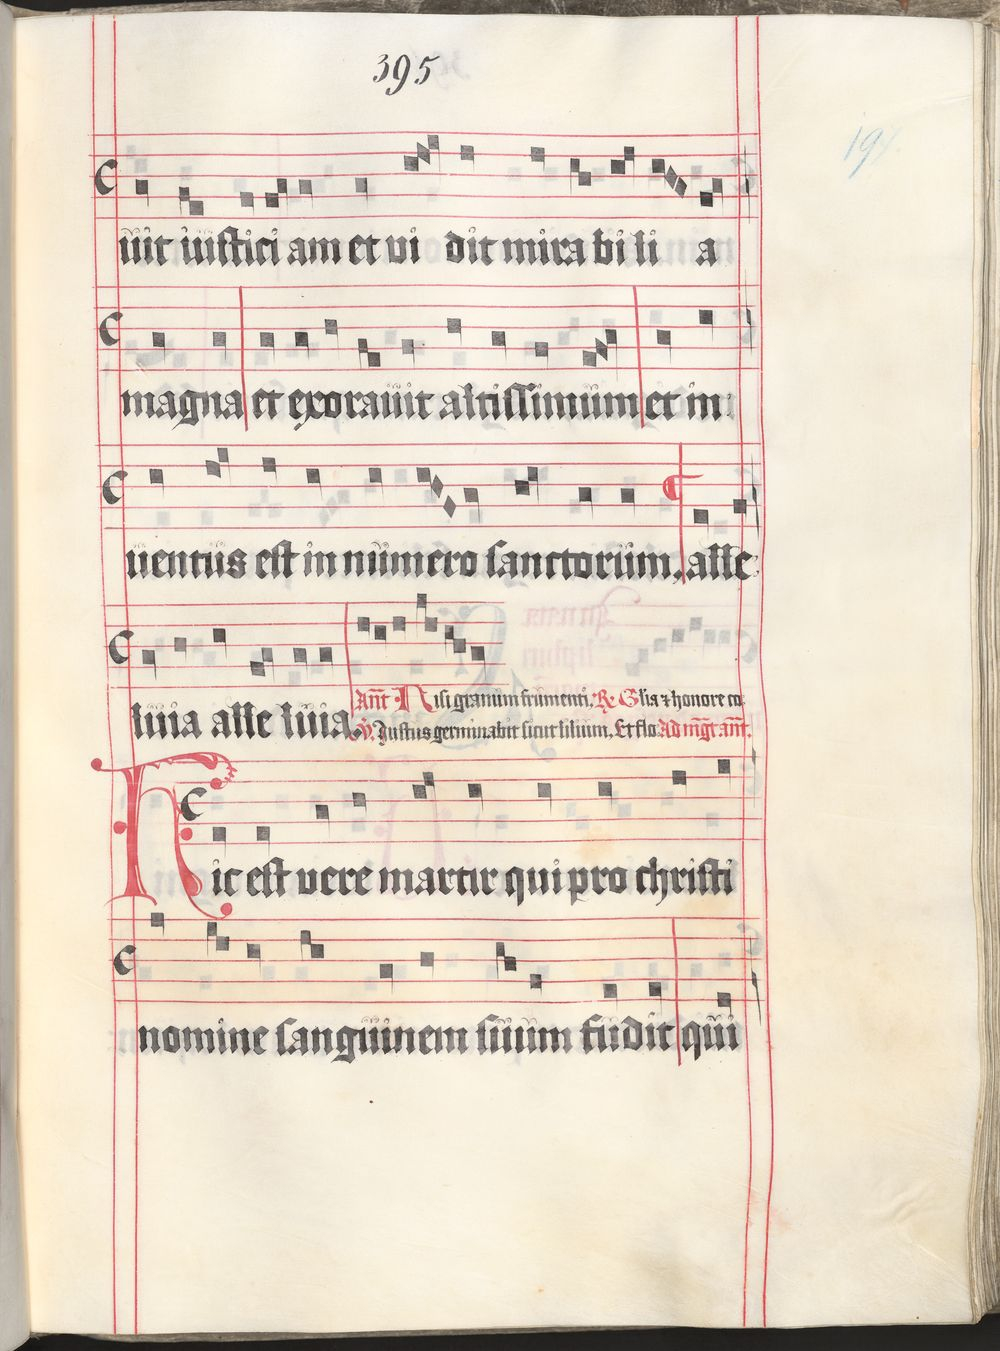 395
197
iuit iusticiam et vidit mirabilia
magna et exorauit altissimum et in
uentus est in numero sanctorum, alle
luuia alle luuia.
Ant̄ Nisi granum frumenti. R̄ Glia ⁊ honore co
V̄ Justus germinabit sicut lilium. Et flo Ad mḡt ant̄.
Hic est vere martir qui pro christi
nomine sanguinem suum fudit qui